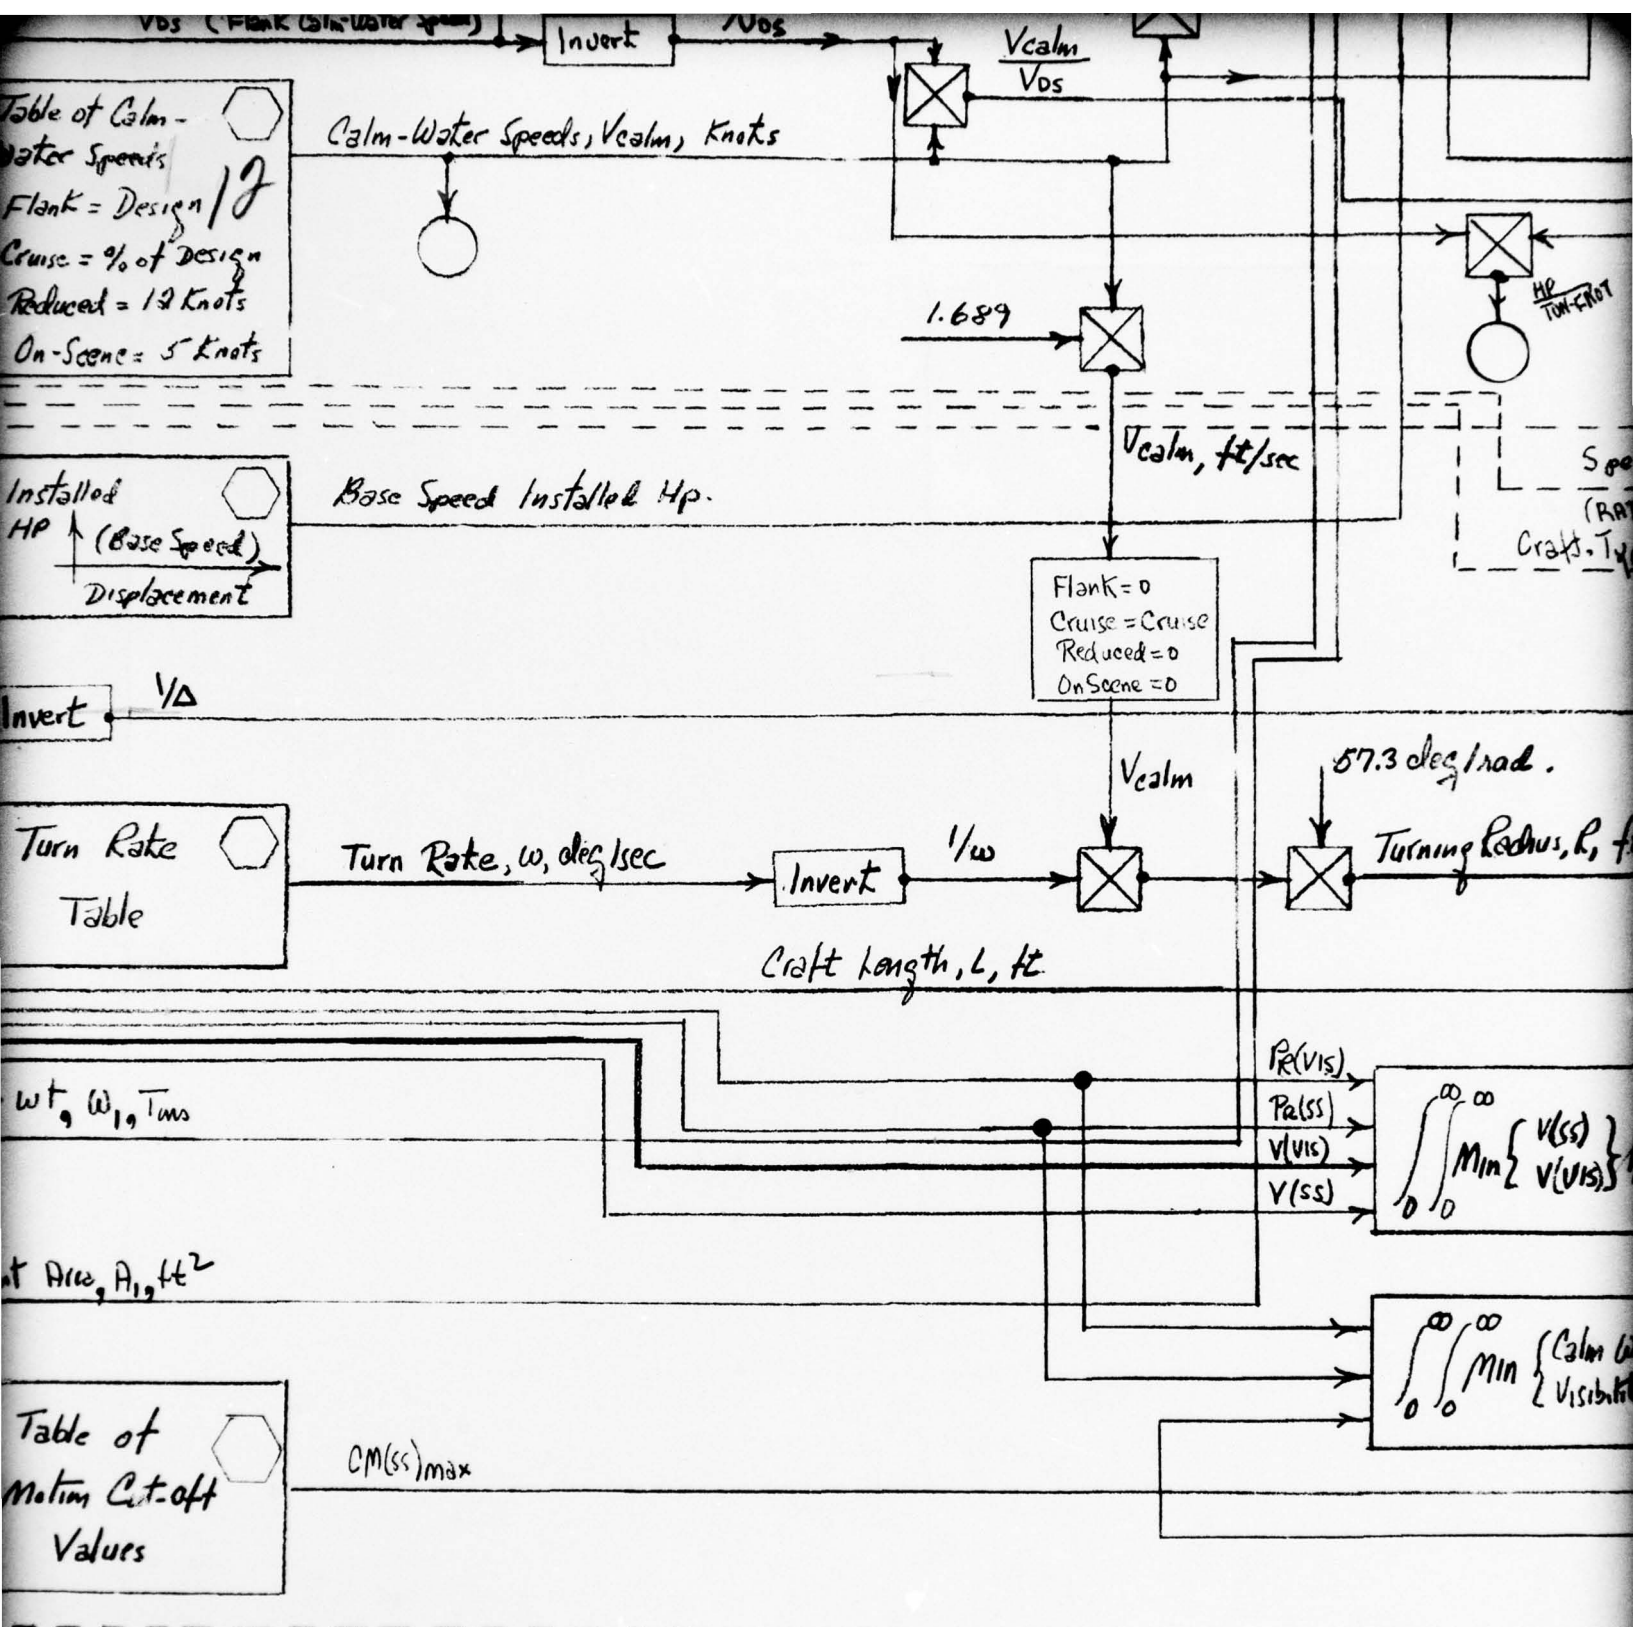 VDS (Flank Calm-Water Speed)
Invert
1/VDS
Vcalm
VDS
Table of Calm-
Water Speeds
Flank = Design
12
Cruise = % of Design
Reduced = 12 Knots
On-Scene = 5 Knots
Calm-Water Speeds, Vcalm, Knots
HP
TON-KNOT
1.689
Vcalm, ft/sec
Installed
HP
(Base Speed)
Displacement
Base Speed Installed Hp.
Craft
Flank = 0
Cruise = Cruise
Reduced = 0
OnScene = 0
Invert
1/Δ
Vcalm
57.3 deg/rad.
Turn Rate
Table
Turn Rate, ω, deg/sec
Invert
1/ω
Turning Radius, R,
Craft Length, L, ft
PR(VIS)
Pa(SS)
V(VIS)
V(SS)
∫0∞ ∫0∞ Min { V(SS)
V(VIS) }
wt, W1, Tons
Area, A1, ft²
∫0∞ ∫0∞ Min { Calm
Table of
Motion Cut-off
Values
CM(SS)max